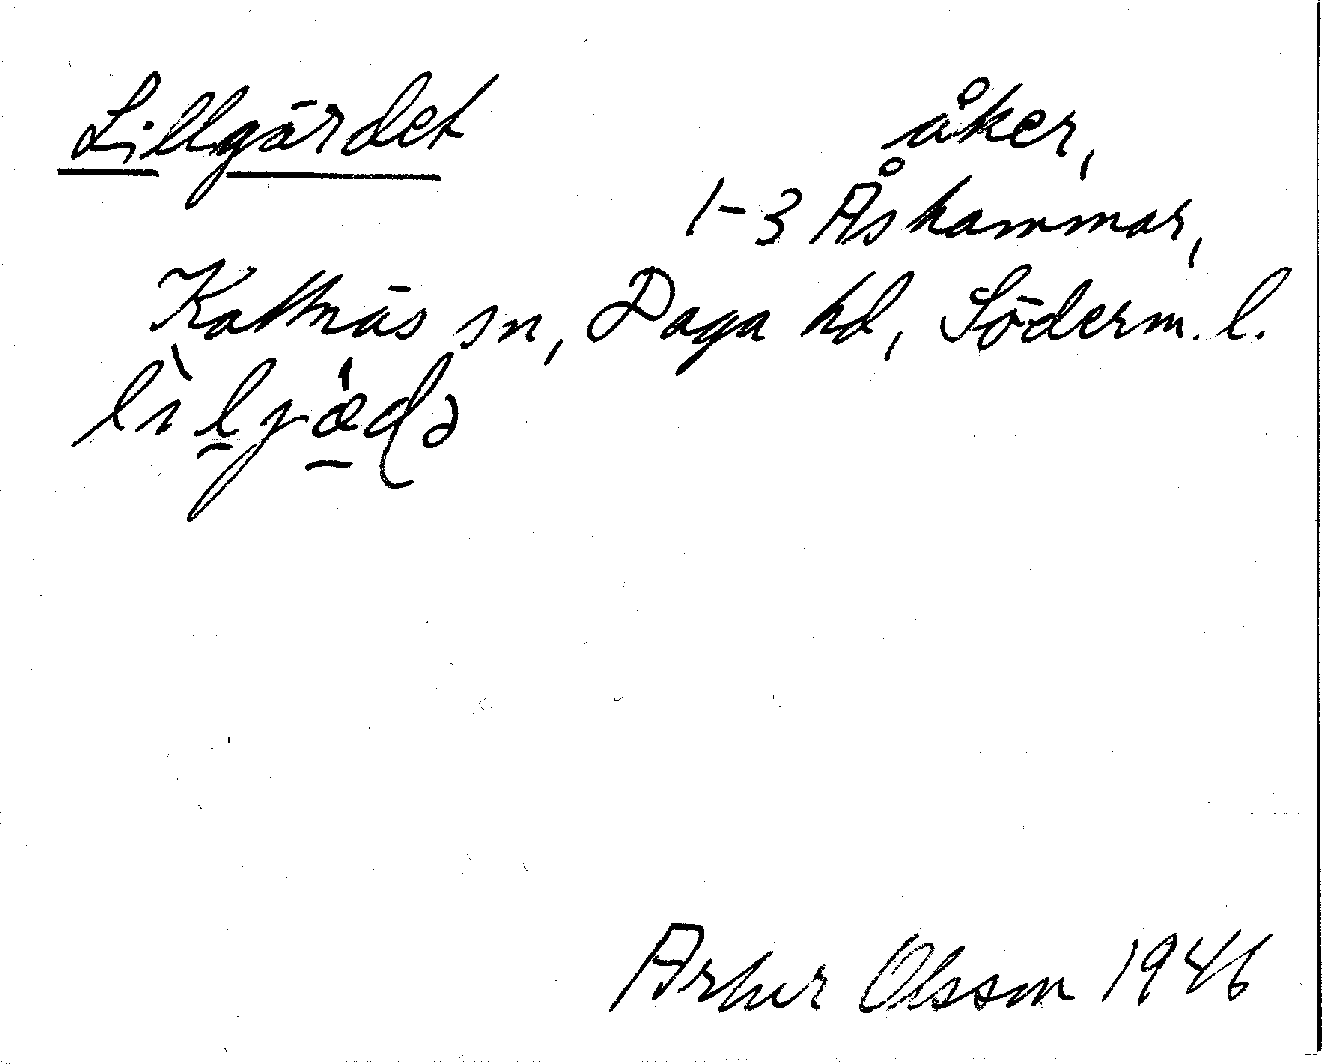 Lillgärdet åker,
1-3 Åshammar,
Kattnäs sn, Daga hd, Söderm. l.
lìl̲jæ̲̍də
Artur Olsson 1946